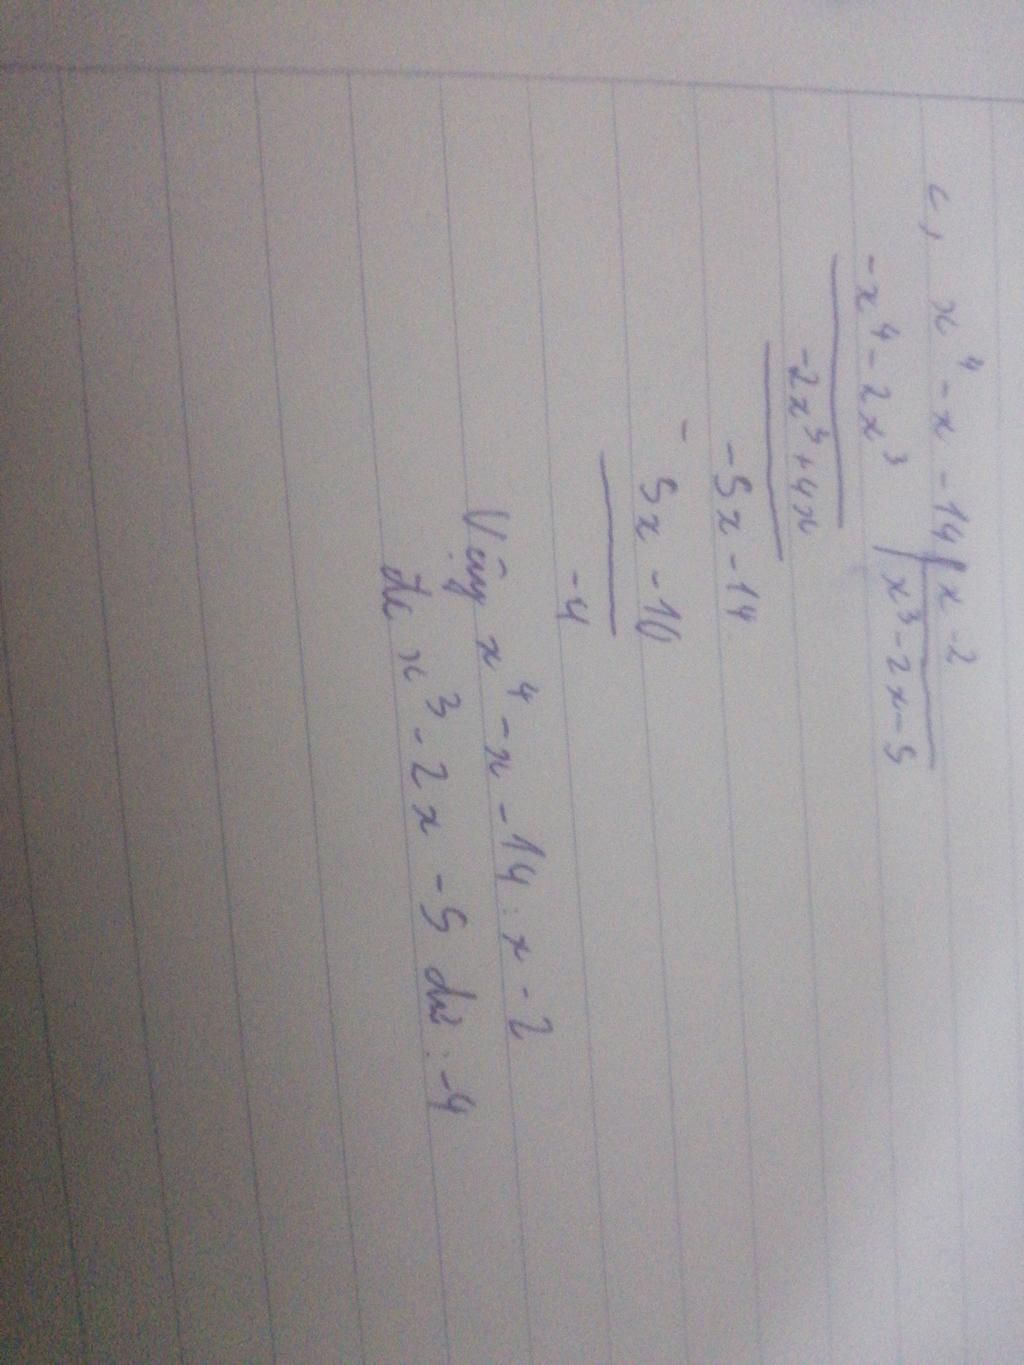 c, x⁴ - x - 14 | x - 2
- x⁴ - 2x³ | x³ - 2x - 5
-2x³ + 4x
-5x - 14
- 5x - 10
-4
Vậy x⁴ - x - 14 : x - 2
đc x³ - 2x - 5 dư : -4